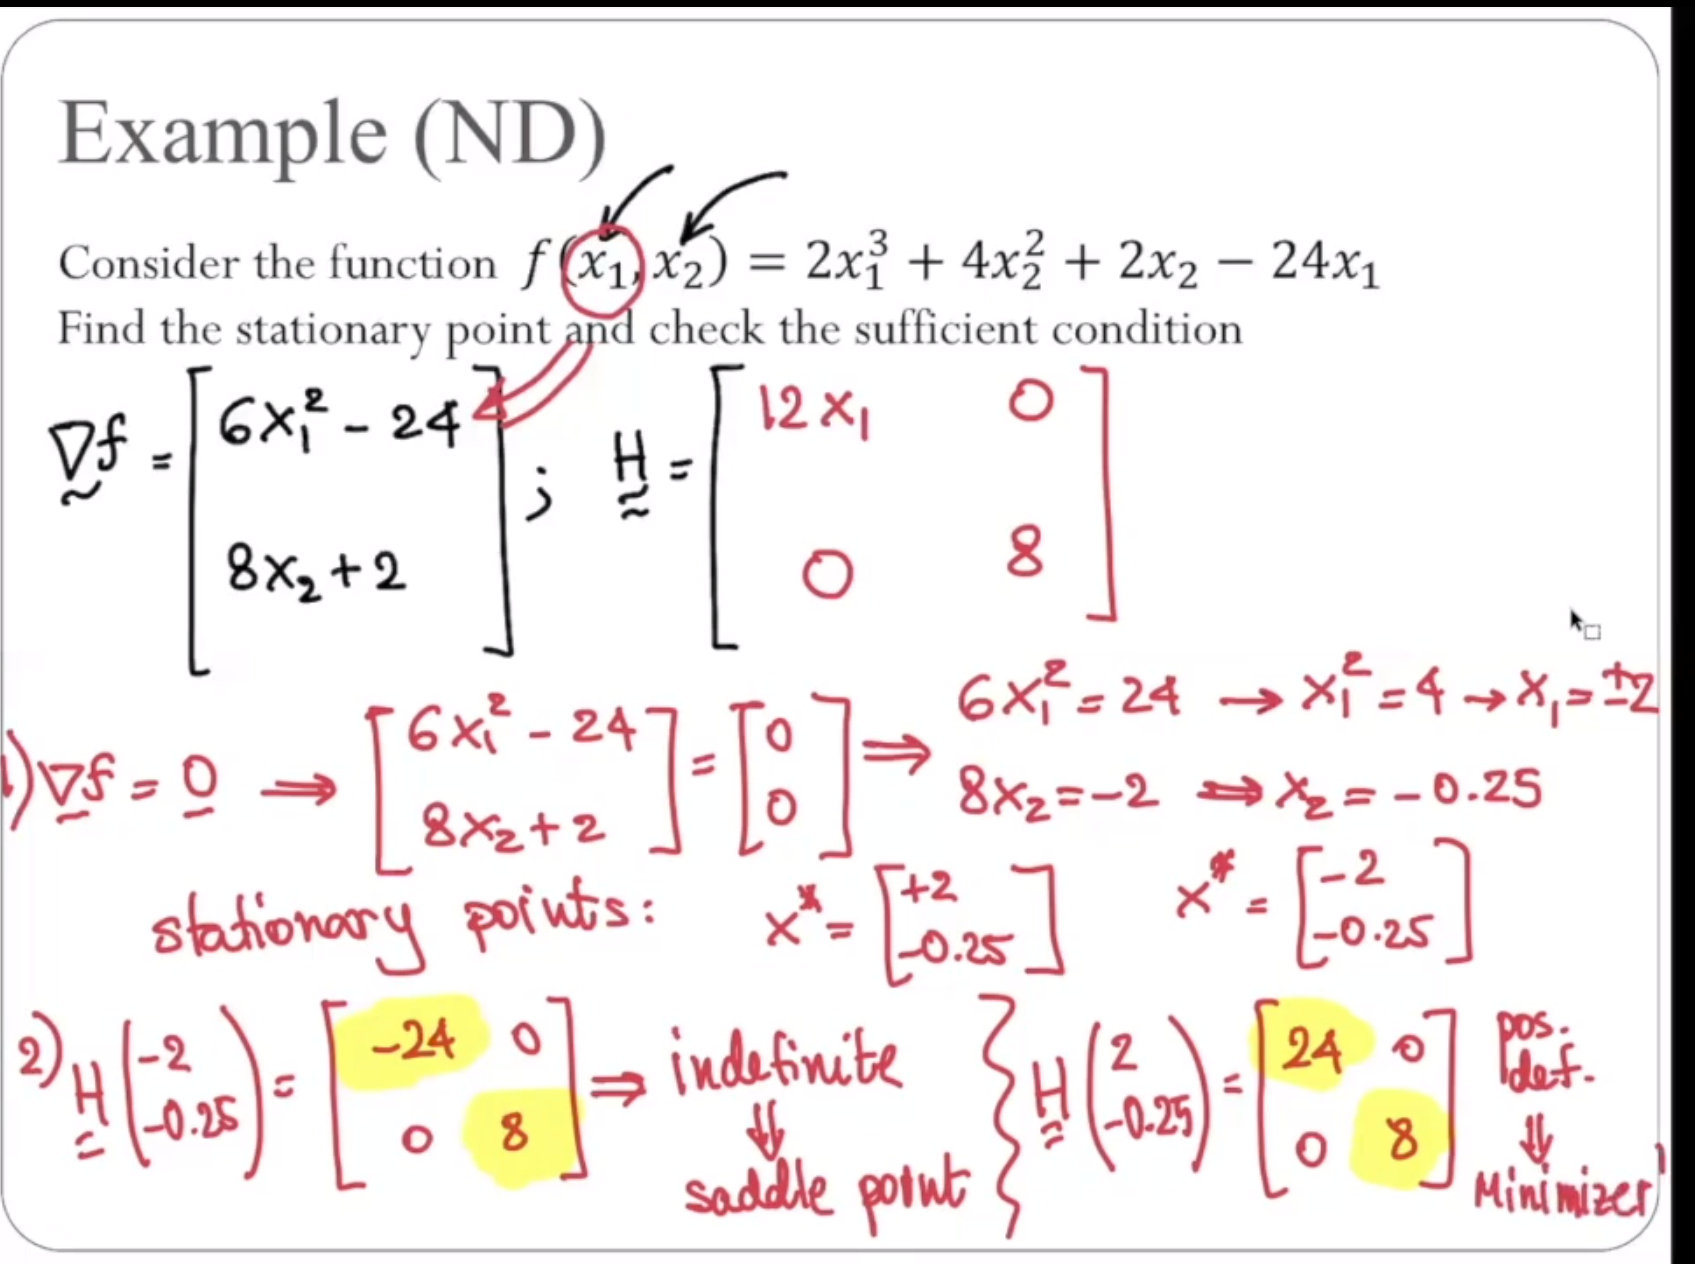 Example (ND)
Consider the function f(x₁, x₂) = 2x₁³ + 4x₂² + 2x₂ − 24x₁
Find the stationary point and check the sufficient condition
∇f = [6x₁² - 24 ; 8x₂ + 2] ; H = [12x₁ 0 ; 0 8]
1) ∇f = 0 ⟹ [6x₁² - 24 ; 8x₂ + 2] = [0 ; 0] ⟹ 6x₁² = 24 → x₁² = 4 → x₁ = ±2
8x₂ = -2 ⟹ x₂ = -0.25
stationary points: x* = [+2 ; -0.25] x* = [-2 ; -0.25]
2) H(-2 ; -0.25) = [-24 0 ; 0 8] ⟹ indefinite ⇓ saddle point } H(2 ; -0.25) = [24 0 ; 0 8] pos. def. ⇓ Minimizer